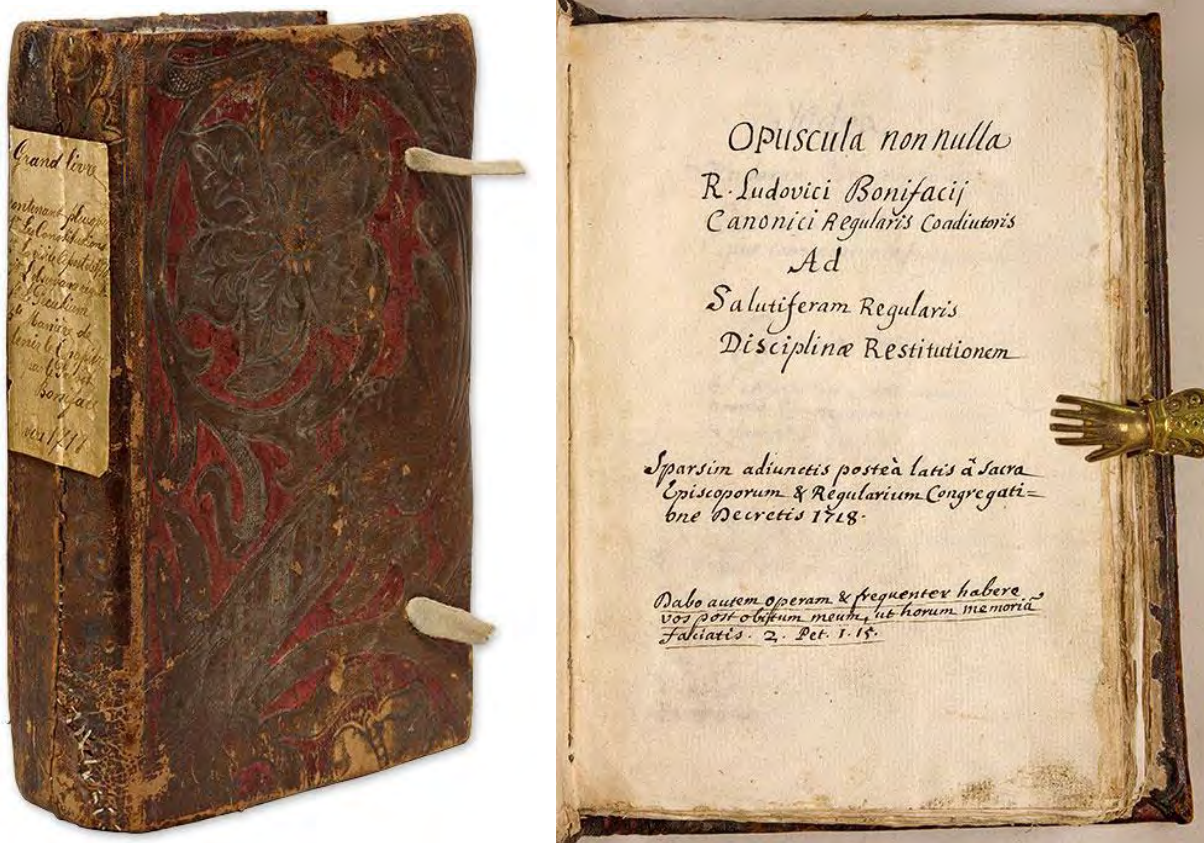 Grand livre
contenant
Constitutions
Manière de
tenir le
Boniface
1718
Opuscula non nulla
R. Ludovici Bonifacij
Canonici Regularis Coadiutoris
Ad
Salutiferam Regularis
Disciplinæ Restitutionem
Sparsim adiunctis posteà latis â Sacra
Episcoporum & Regularium Congregati=
one Decretis 1718.
Dabo autem operam & frequenter habere
vos post obitum meum, ut horum memoriã
faciatis. 2. Pet. 1. 15.